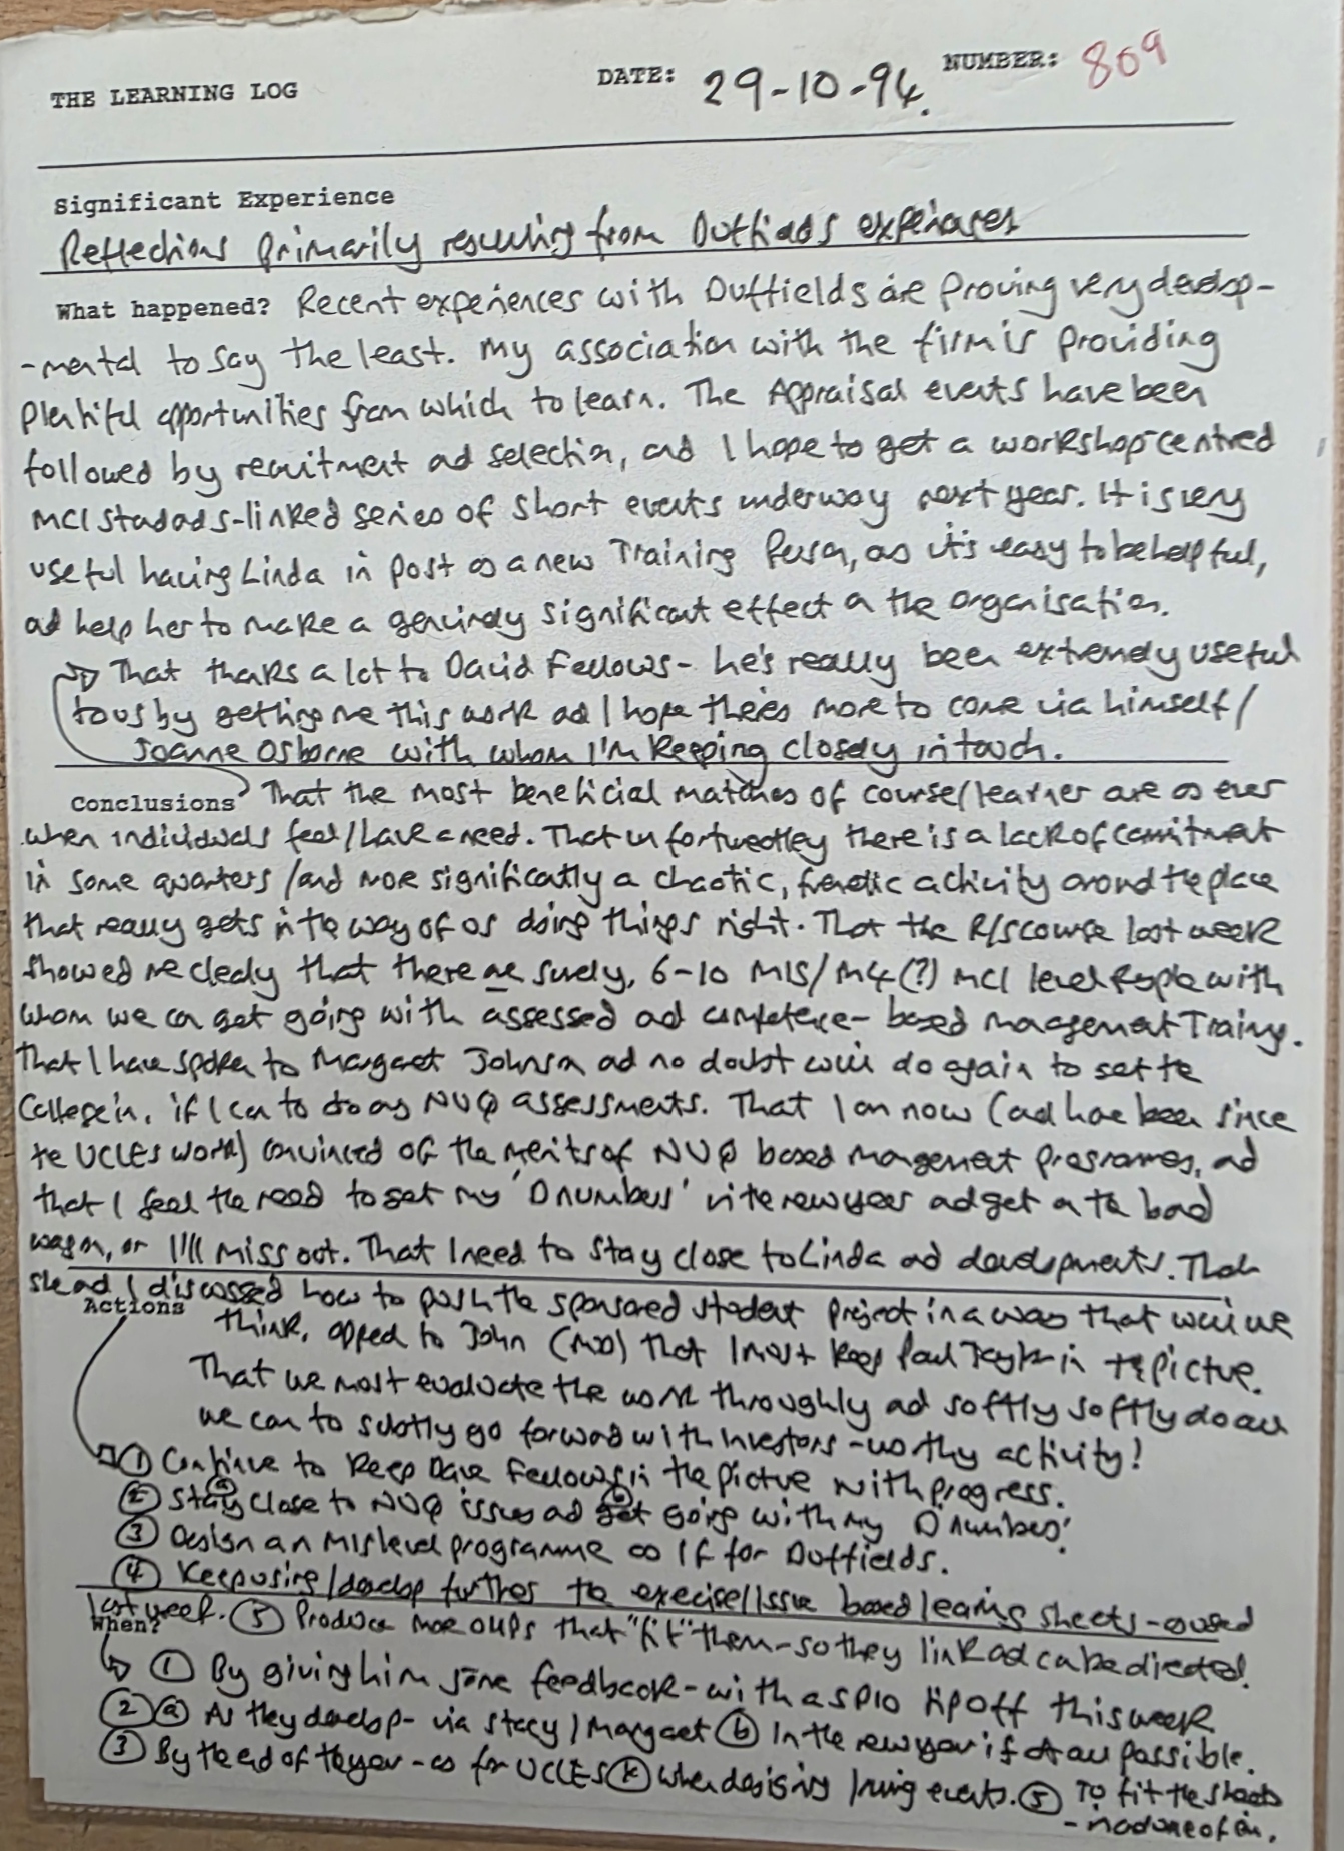 THE LEARNING LOG DATE: 29-10-94. NUMBER: 809
Significant Experience
Reflections primarily resulting from Duffields experiences
What happened? Recent experiences with Duffields are proving very develop-
-mental to say the least. My association with the firm is providing
plentiful opportunities from which to learn. The Appraisal events have been
followed by recruitment and selection, and I hope to get a workshop-centred
MCI standards-linked series of short events underway next year. It is very
useful having Linda in post as a new Training Person, as it's easy to be helpful,
and help her to make a genuinely significant effect on the organisation.
That thanks a lot to David Fellows - he's really been extremely useful
to us by getting me this work and I hope there's more to come via himself/
Joanne Osborne with whom I'm keeping closely in touch.
Conclusions That the most beneficial matches of course/learner are as ever
when individuals feel/have a need. That unfortunately there is a lack of commitment
in some quarters /and more significantly a chaotic, frenetic activity around the place
that really gets in the way of us doing things right. That the R/S course last week
showed me clearly that there are surely, 6-10 M1S/M4(?) MCI level people with
whom we can get going with assessed and competence-based management Training.
That I have spoken to Margaret Johnson and no doubt will do again to set the
College in, if I can to do any NVQ assessments. That I am now (and have been since
the UCLES work) convinced of the merits of NVQ based management programmes, and
that I feel the need to get my 'D numbers' in the new year and get on the band
wagon, or I'll miss out. That I need to stay close to Linda and developments. That
she and I discussed how to push the sponsored student project in a way that will we
Actions
think, appeal to John (MD) that I must keep Paul in the picture.
That we must evaluate the work thoroughly and softly softly do all
we can to subtly go forward with Investors-worthy activity!
① Continue to keep Dave Fellows in the picture with progress.
② ⓐ Stay close to NVQ issues and ⓑ get going with my 'D numbers'.
③ Design an M1S level programme as if for Duffields.
④ Keep using/develop further the exercise/issue based learning sheets - as used
last week. ⑤ Produce more OHPs that "fit" them - so they link and can be directed.
When?
① By giving him some feedback - with a tip off this week
② ⓐ As they develop - via Stacy/Margaret ⓑ In the new year if at all possible.
③ By the end of the year - as for UCLES ④ When designing/running events. ⑤ To fit the sheets